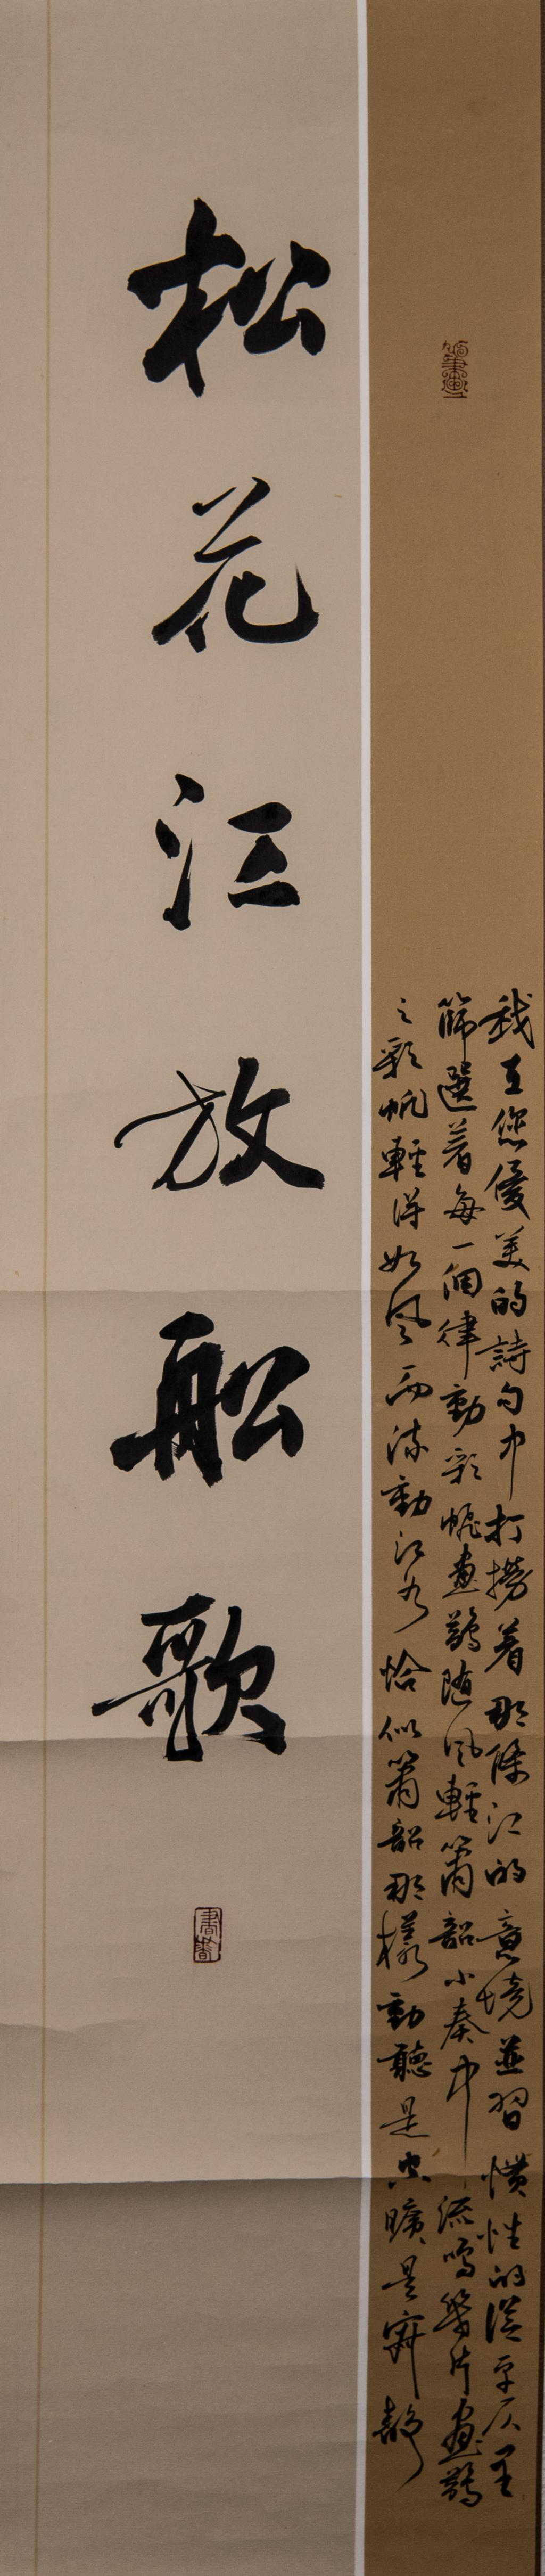 我在您優美的詩句中打撈著那條江的意境並習慣性的從平仄里
篩選著每一個律動彩帆畫鷁随風輕簫韶小奏中流鳴片畫鷁
之彩帆輕得如風而流動江水恰似簫韶那樣動聽是空曠是寂靜
松花江放船歌